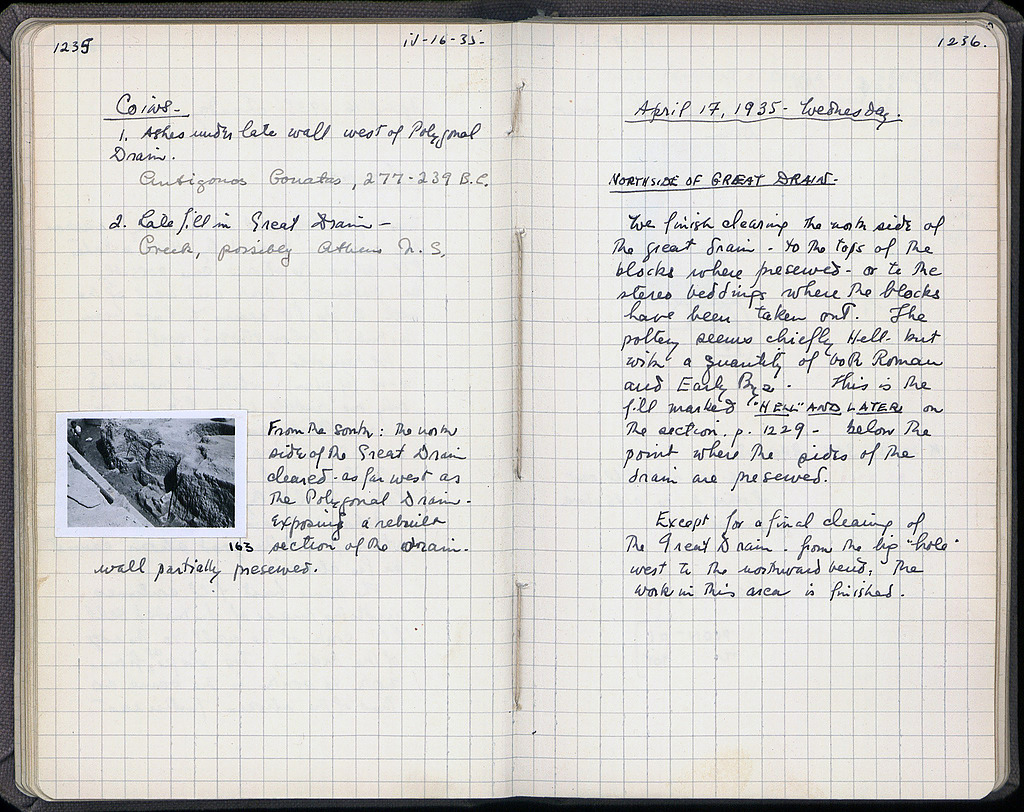 1235
iv-16-35-
Coins-
1. Ashes under late wall west of Polygonal
Drain.
Antigonos Gonatas, 277-239 B.C.
2. Late fill in Great Drain-
Greek, possibly Athens N.S.
From the south: the north
side of the Great Drain
cleared - as far west as
the Polygonal Drain-
Exposing a rebuilt
section of the drain-
wall partially preserved.
163
1236.
April 17, 1935- Wednesday.
NORTH SIDE OF GREAT DRAIN-
We finish clearing the north side of
the great drain - to the tops of the
blocks where preserved - or to the
stereo beddings where the blocks
have been taken out. The
pottery seems chiefly Hell- but
with a quantity of both Roman
and Early Byz. This is the
fill marked "HELL" AND LATER on
the section. p. 1229 - below the
point where the sides of the
drain are preserved.
Except for a final clearing of
the Great Drain. from the big "hole"
west to the northward bend, the
work in this area is finished.